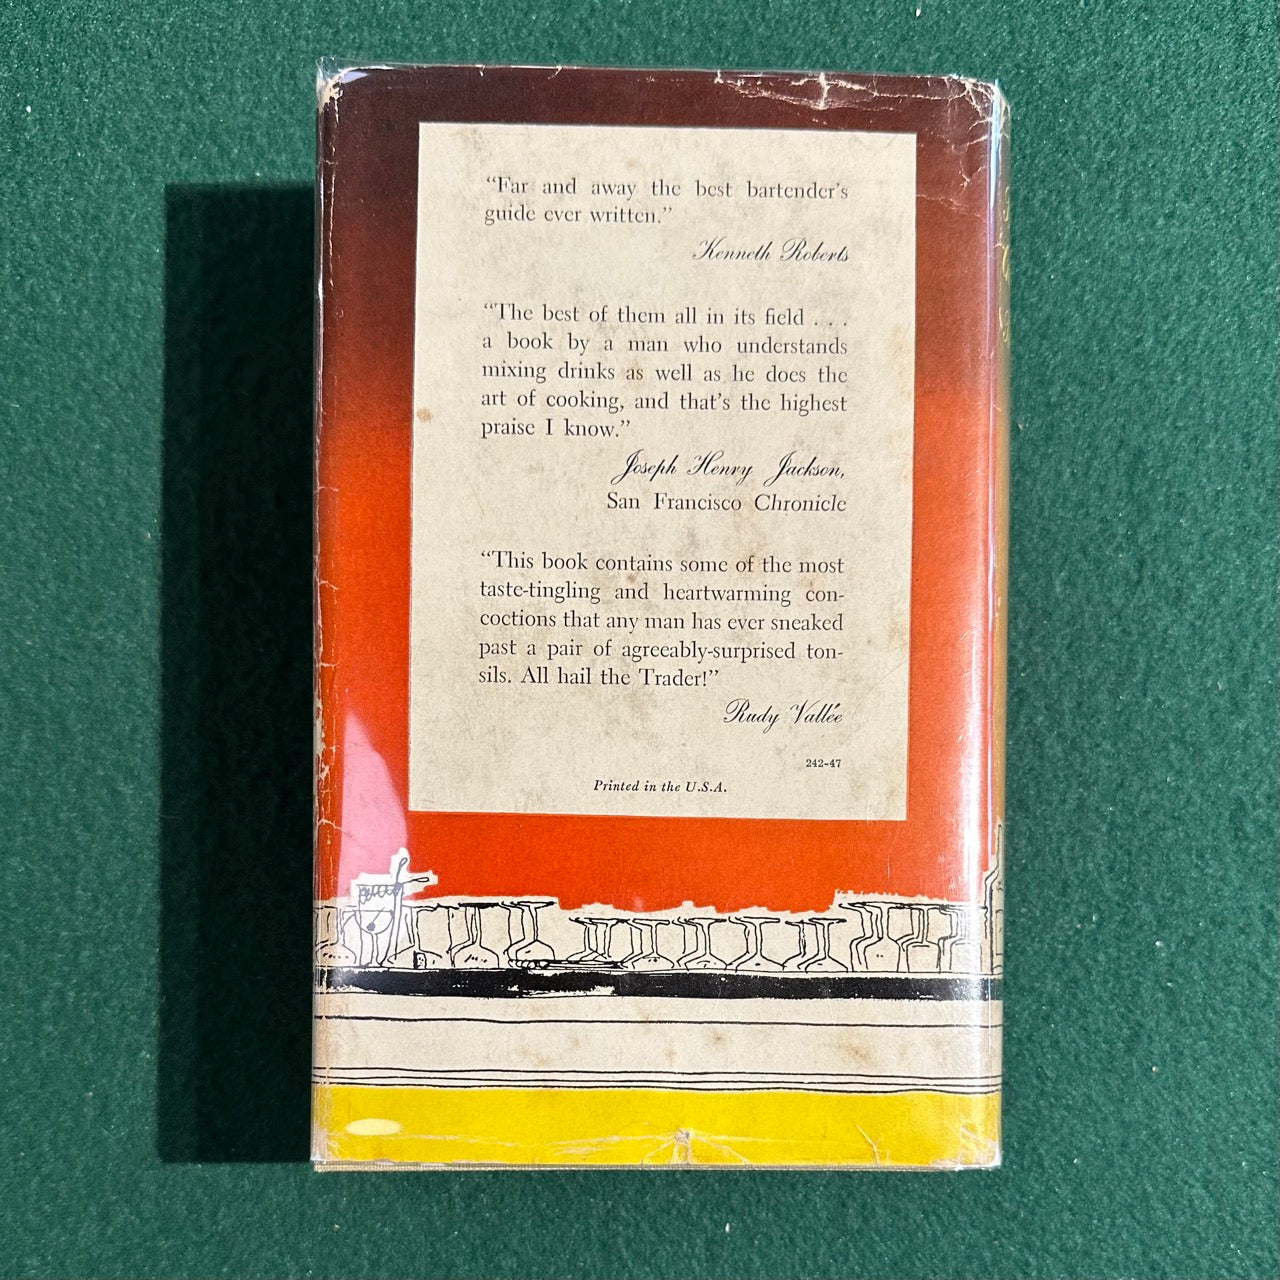 “Far and away the best bartender’s
guide ever written.”
Kenneth Roberts
“The best of them all in its field . . .
a book by a man who understands
mixing drinks as well as he does the
art of cooking, and that’s the highest
praise I know.”
Joseph Henry Jackson,
San Francisco Chronicle
“This book contains some of the most
taste-tingling and heartwarming con-
coctions that any man has ever sneaked
past a pair of agreeably-surprised ton-
sils. All hail the Trader!”
Rudy Vallée
242-47
Printed in the U.S.A.